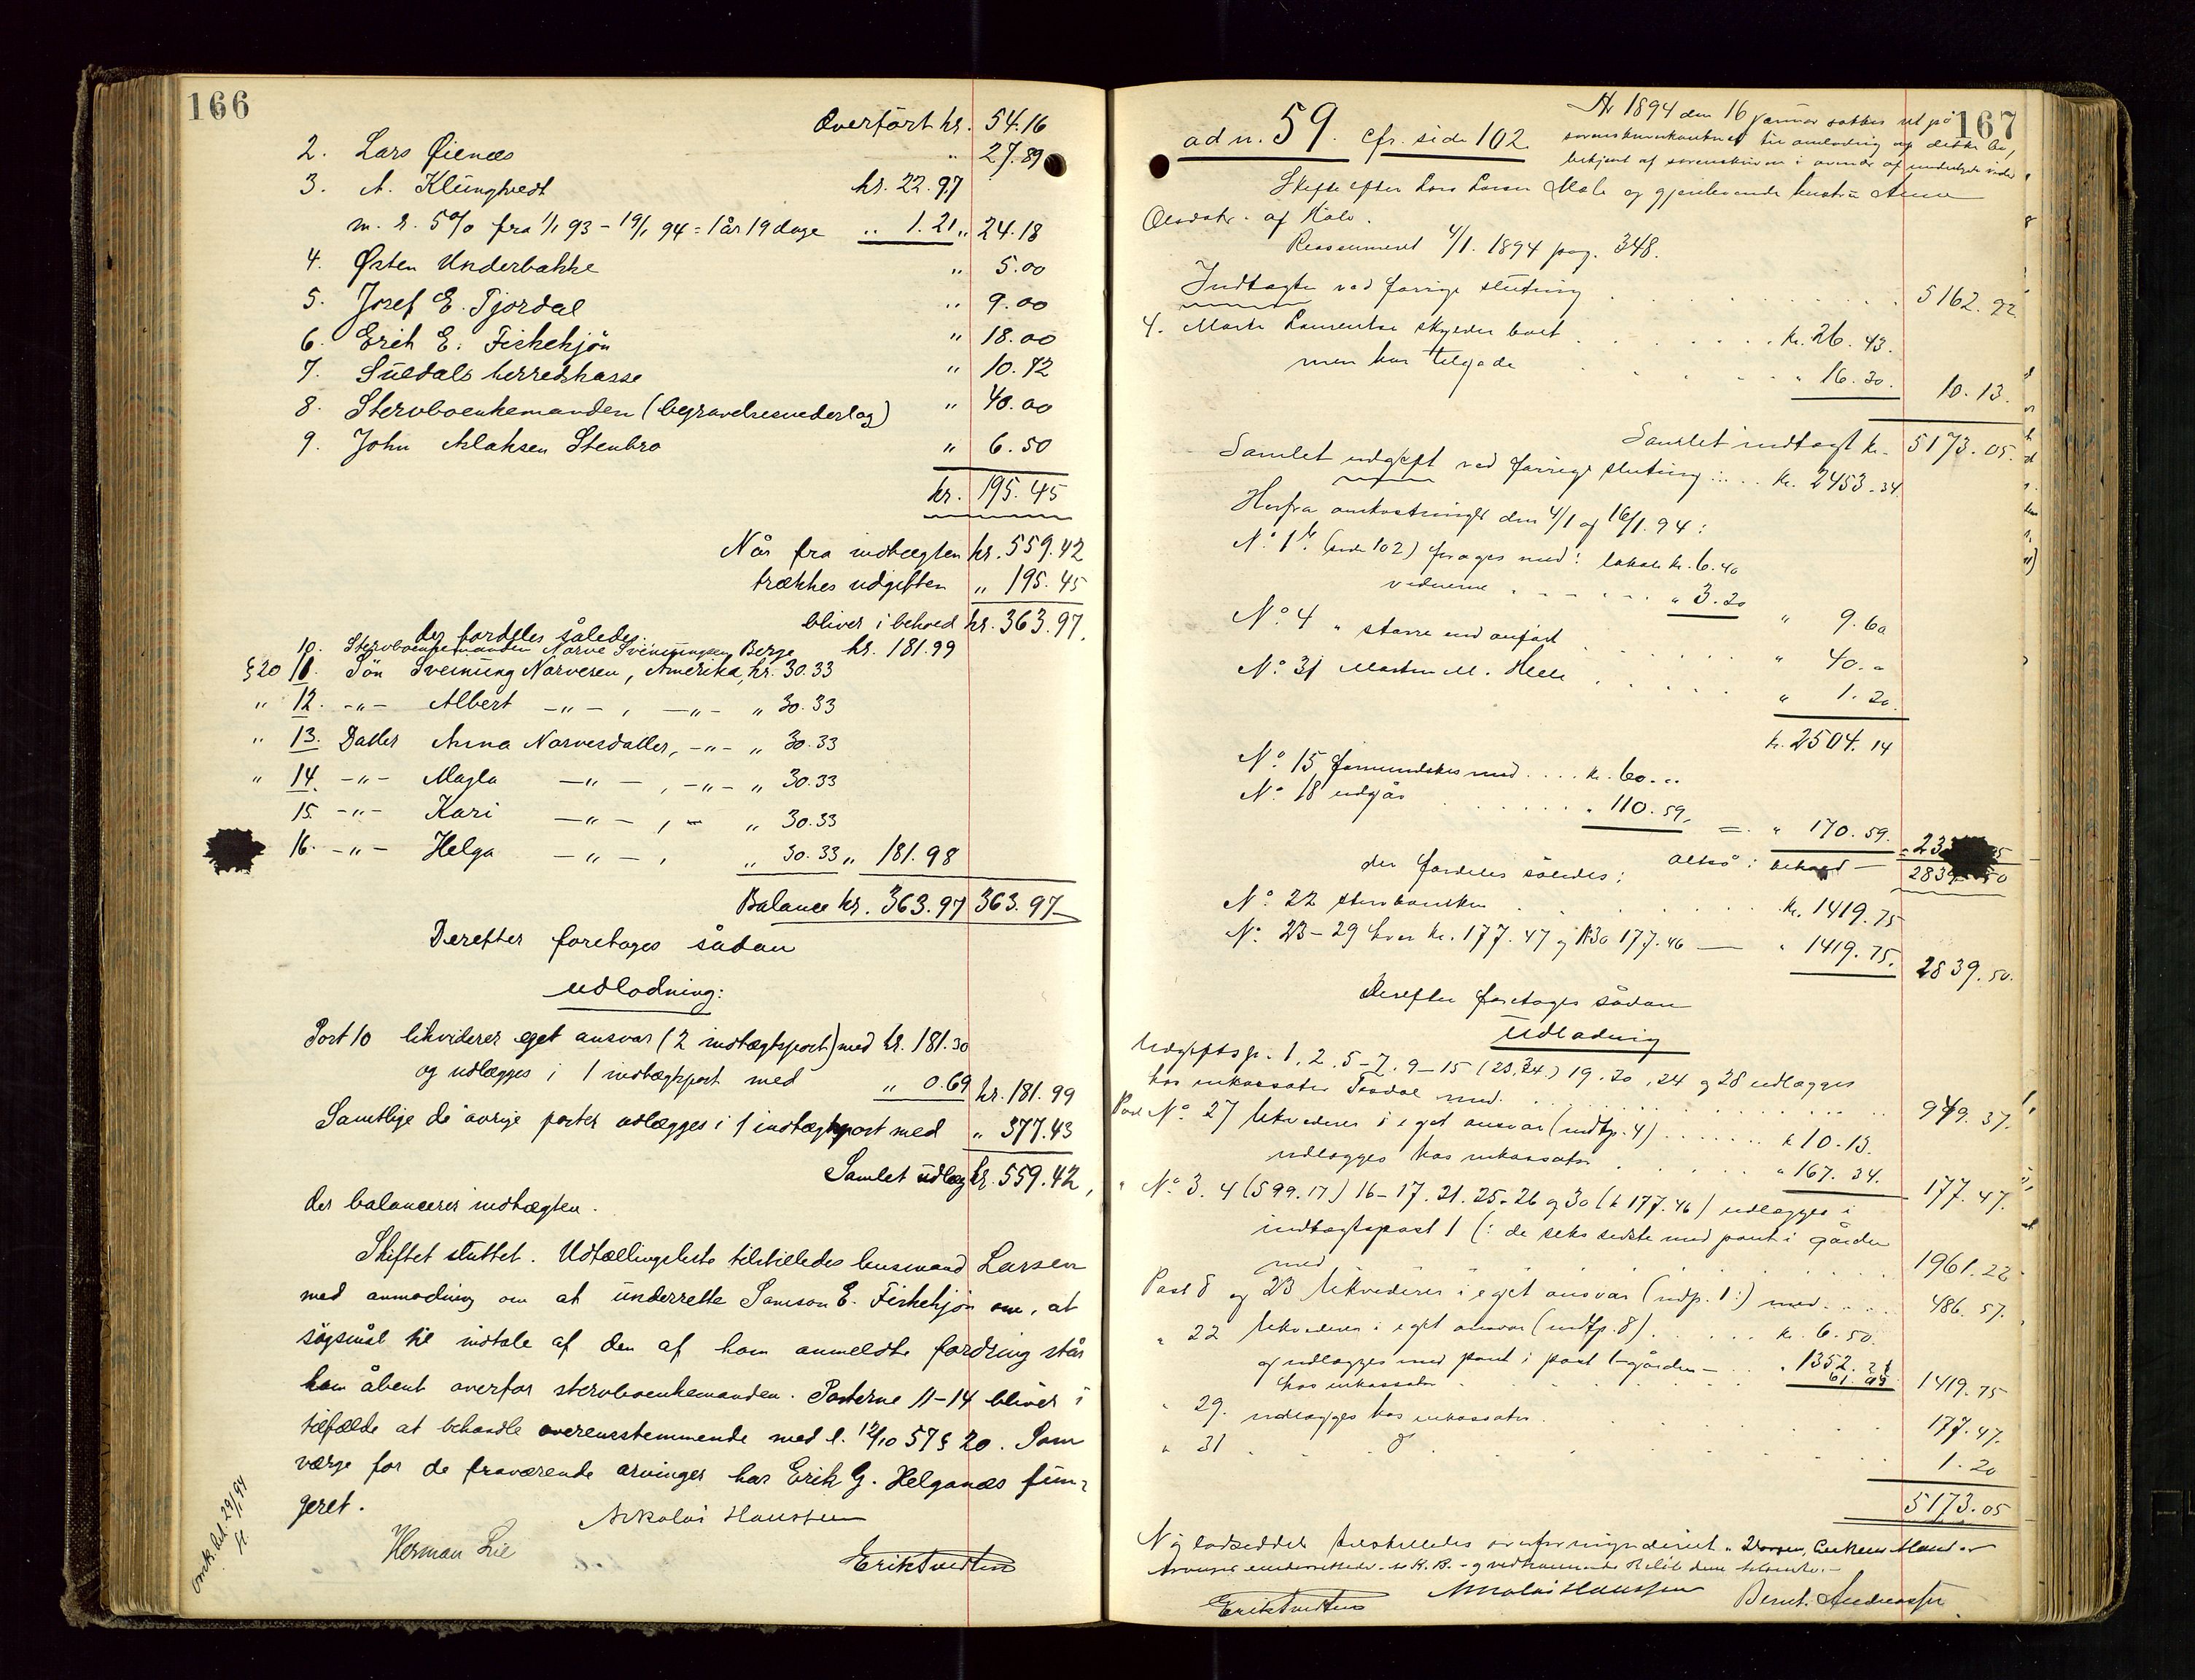 166
Overført kr. 54.16
2. Lars Øienæs " 27.89
3. A. Klungtvedt kr. 22.97
m. r. 5% fra 1/1 93 – 19/1 94 = 1 år 19 dage " 1.21 " 24.18
4. Østen Underbakke " 5.00
5. Josef E. Tjordal " 9.00
6. Erik E. Fiskekjön " 18.00
7. Suldals herredskasse " 10.72
8. Stervboenkemanden (begravelsesvederlag) " 40.00
9. John Aslaksen Stenbro " 6.50
kr. 195.45
Når fra indtægten kr. 559.42
trækkes udgiften " 195.45
bliver i behold kr. 363.97.
der fordeles således:
10. Stervboenkemanden Narve Sveinungsen Berge kr. 181.99
§20 11. Sön Sveinung Narvesen, Amerika, kr. 30.33
" 12. -"- Albert -"- , -"- " 30.33
" 13. Datter Anna Narvesdatter, -"- " 30.33
" 14. -"- Magla -"- , -"- " 30.33
15. -"- Kari -"- , - " 30.33
16. -"- Helga -"- , " 30.33 " 181.98
Balance kr. 363.97 363.97
Derefter foretages sådan
udlodning:
Post 10 likviderer eget ansvar (2 indtægtspost) med kr. 181.30
og udlægges i 1 indtægtspost med " 0.69 kr. 181.99
Samtlige de øvrige poster udlægges i 1 indtægtspost med " 377.43
Samlet udlæg kr. 559.42,
der balancerer indtægten.
Skiftet sluttet. Udtællingsliste tilstilledes lensmand Larsen
med anmodning om at underrette Samson E. Fiskekjön om, at
søgsmål til indtale af den af ham anmeldte fordring står
ham åbent overfor stervboenkemanden. Posterne 11–14 bliver i
tilfælde at behandle overensstemmende med l. 12/10 57 § 20. Som
værge for de fraværende arvinger har Erik G. Helganæs fun-
geret.
Nikolai Hanssen
Herman Lie
Erik Tvedten
29/1 94
H.
167
ad n. 59. cfr. side 102.
År 1894 den 16 januar sattes ret på
sorenskriverkontoret til avslutning av dette bo,
betjent af sorenskriveren i overvær af undertegnede vidner
Skifte efter Lars Larsen Mæle og gjenlevende hustru Anna
Olsdatr. af
Reassumeret 4/1. 1894 pag. 348.
Indtægter ved forrige slutning 5162.92
4. Marte Lauritsen skylder boet kr. 26.43.
men har tilgode " 16.30. 10.13.
Samlet indtægt kr. 5173.05.
Samlet udgift ved forrige slutning kr. 2453.34
Herfra omkostninger den 4/1 og 16/1. 94:
No. 1 b. (side 102) forøges med: lokale kr. 6.40
vidnerne " 3.20 " 9.60
No. 4 " større end anført " 40. "
No. 31 Morten M. Helle " 1.20.
kr. 2504.14
No. 15 formindskes med kr. 60. "
No. 18 udgår " 110.59. = " 170.59.
altså: behold — 2839.50
der fordeles således:
No. 22 stervboenken kr. 1419.75
No. 23–29 hver kr. 177.47 og 30 177.46 — " 1419.75. 2839.50.
Derefter foretages sådan
Udlodning
Udgiftsp. 1, 2, 5–7, 9–15 (23.24.) 19. 20, 24 og 28 udlægges
hos inkassator med 949.37.
Post No. 27 likviderer i eget ansvar (indtp. 4) k 10.13.
udlægges hos inkassator " 167.34. 177.47.
" No. 3. 4 (599.17) 16–17. 21. 25–26 og 30 (k 177.46) udlægges i
indtægtspost 1 (: de seks sidste med pant i gården
med 1961.22.
Post 8 og 23 likviderer i eget ansvar (indp. 1:) med 486.57.
" 22 likviderer i eget ansvar (indtp. 8) kr. 6.50.
og udlægges med pant i post 1 – gården — " 1352.
hos inkassator 1419.75
" 29. udlægges hos inkassator. 177.47.
" 31 1.20
5173.05
Erik Tvedten Nikolai Hanssen Bernt. Andreassen